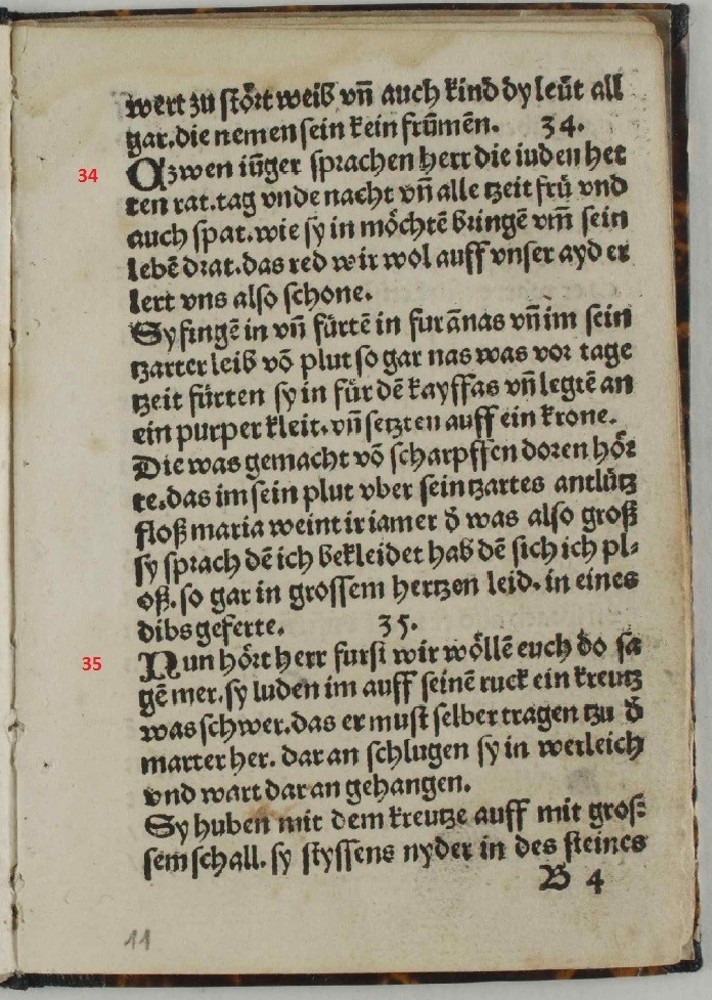 wert zu ſtoͤꝛt weib vñ auch kind dy leuͤt all
gar. die nemen ſein kein fruͤmẽ. 34.
34
Azwen iuͤger ſprachen herꝛ die iuden het
ten rat. tag vnde nacht vñ alle tzeit fruͤ vnd
auch ſpat. wie ſy in moͤchtẽ bꝛingẽ vm̃ ſein
lebẽ dꝛat. das red wir wol auff vnſer ayd er
lert vns alſo ſchone.
Sy fingẽ in vñ fuͤrtẽ in fur ãnas vñ im ſein
tzarter leib võ plut ſo gar nas was voꝛ tage
tzeit fuͤrten ſy in fuͤr dẽ kayffas vñ legtẽ an
ein purper kleit. vñ ſetzten auff ein krone.
Die was gemacht võ ſcharpffen doꝛen hoͤꝛ
te. das im ſein plut vber ſein tzartes antluͤtz
floß maria weint ir iamer d̕ was alſo groß
ſy ſpꝛach dẽ ich bekleidet hab dẽ ſich ich pl⸗
oß. ſo gar in groſſem hertzen leid. in eines
dibs geferte. 35.
35
Nun hoͤꝛt herꝛ furſt wir woͤllẽ euch do ſa
gẽ mer. ſy luden im auff ſeinẽ ruck ein kreutz
was ſchwer. das er muſt ſelber tragen tzu d̕
marter her. dar an ſchlugen ſy in werleich
vnd wart dar an gehangen.
Sy huben mit dem kreutze auff mit groſ⸗
ſem ſchall. ſy ſtyſſens nyder in des ſteines
B 4
11